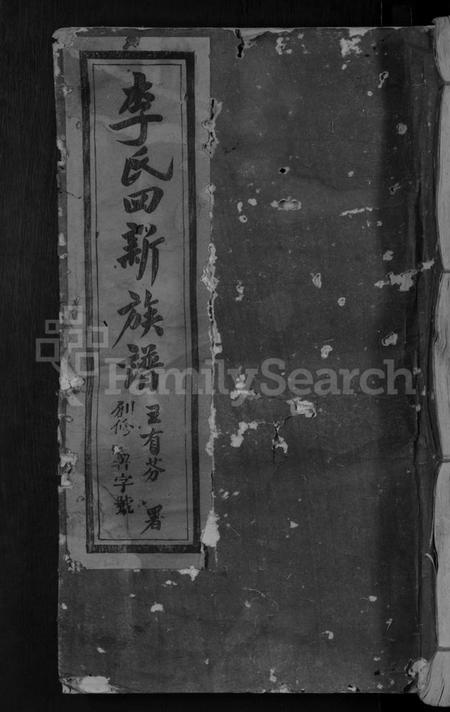 李氏四新族譜
王有芬 署
創修 字號
FamilySearch